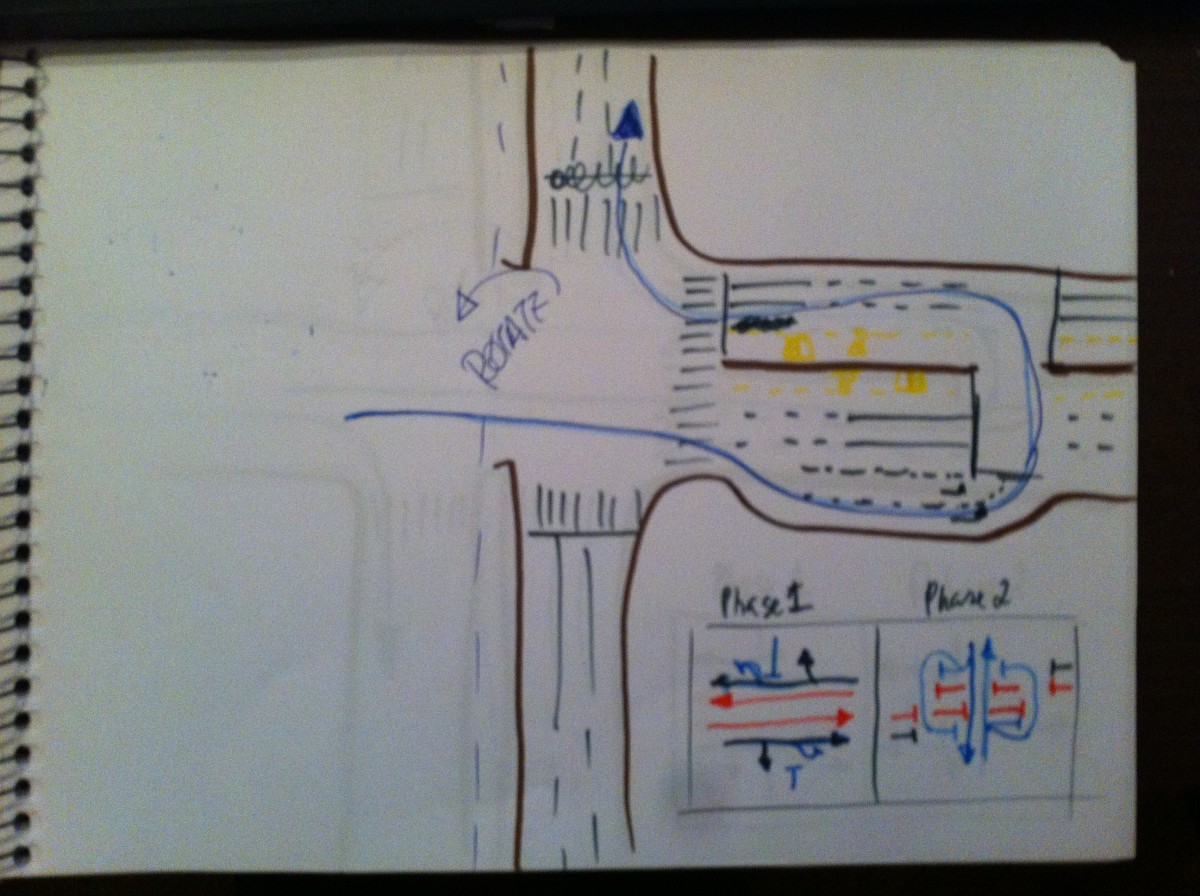 ROTATE
Phase 1
Phase 2